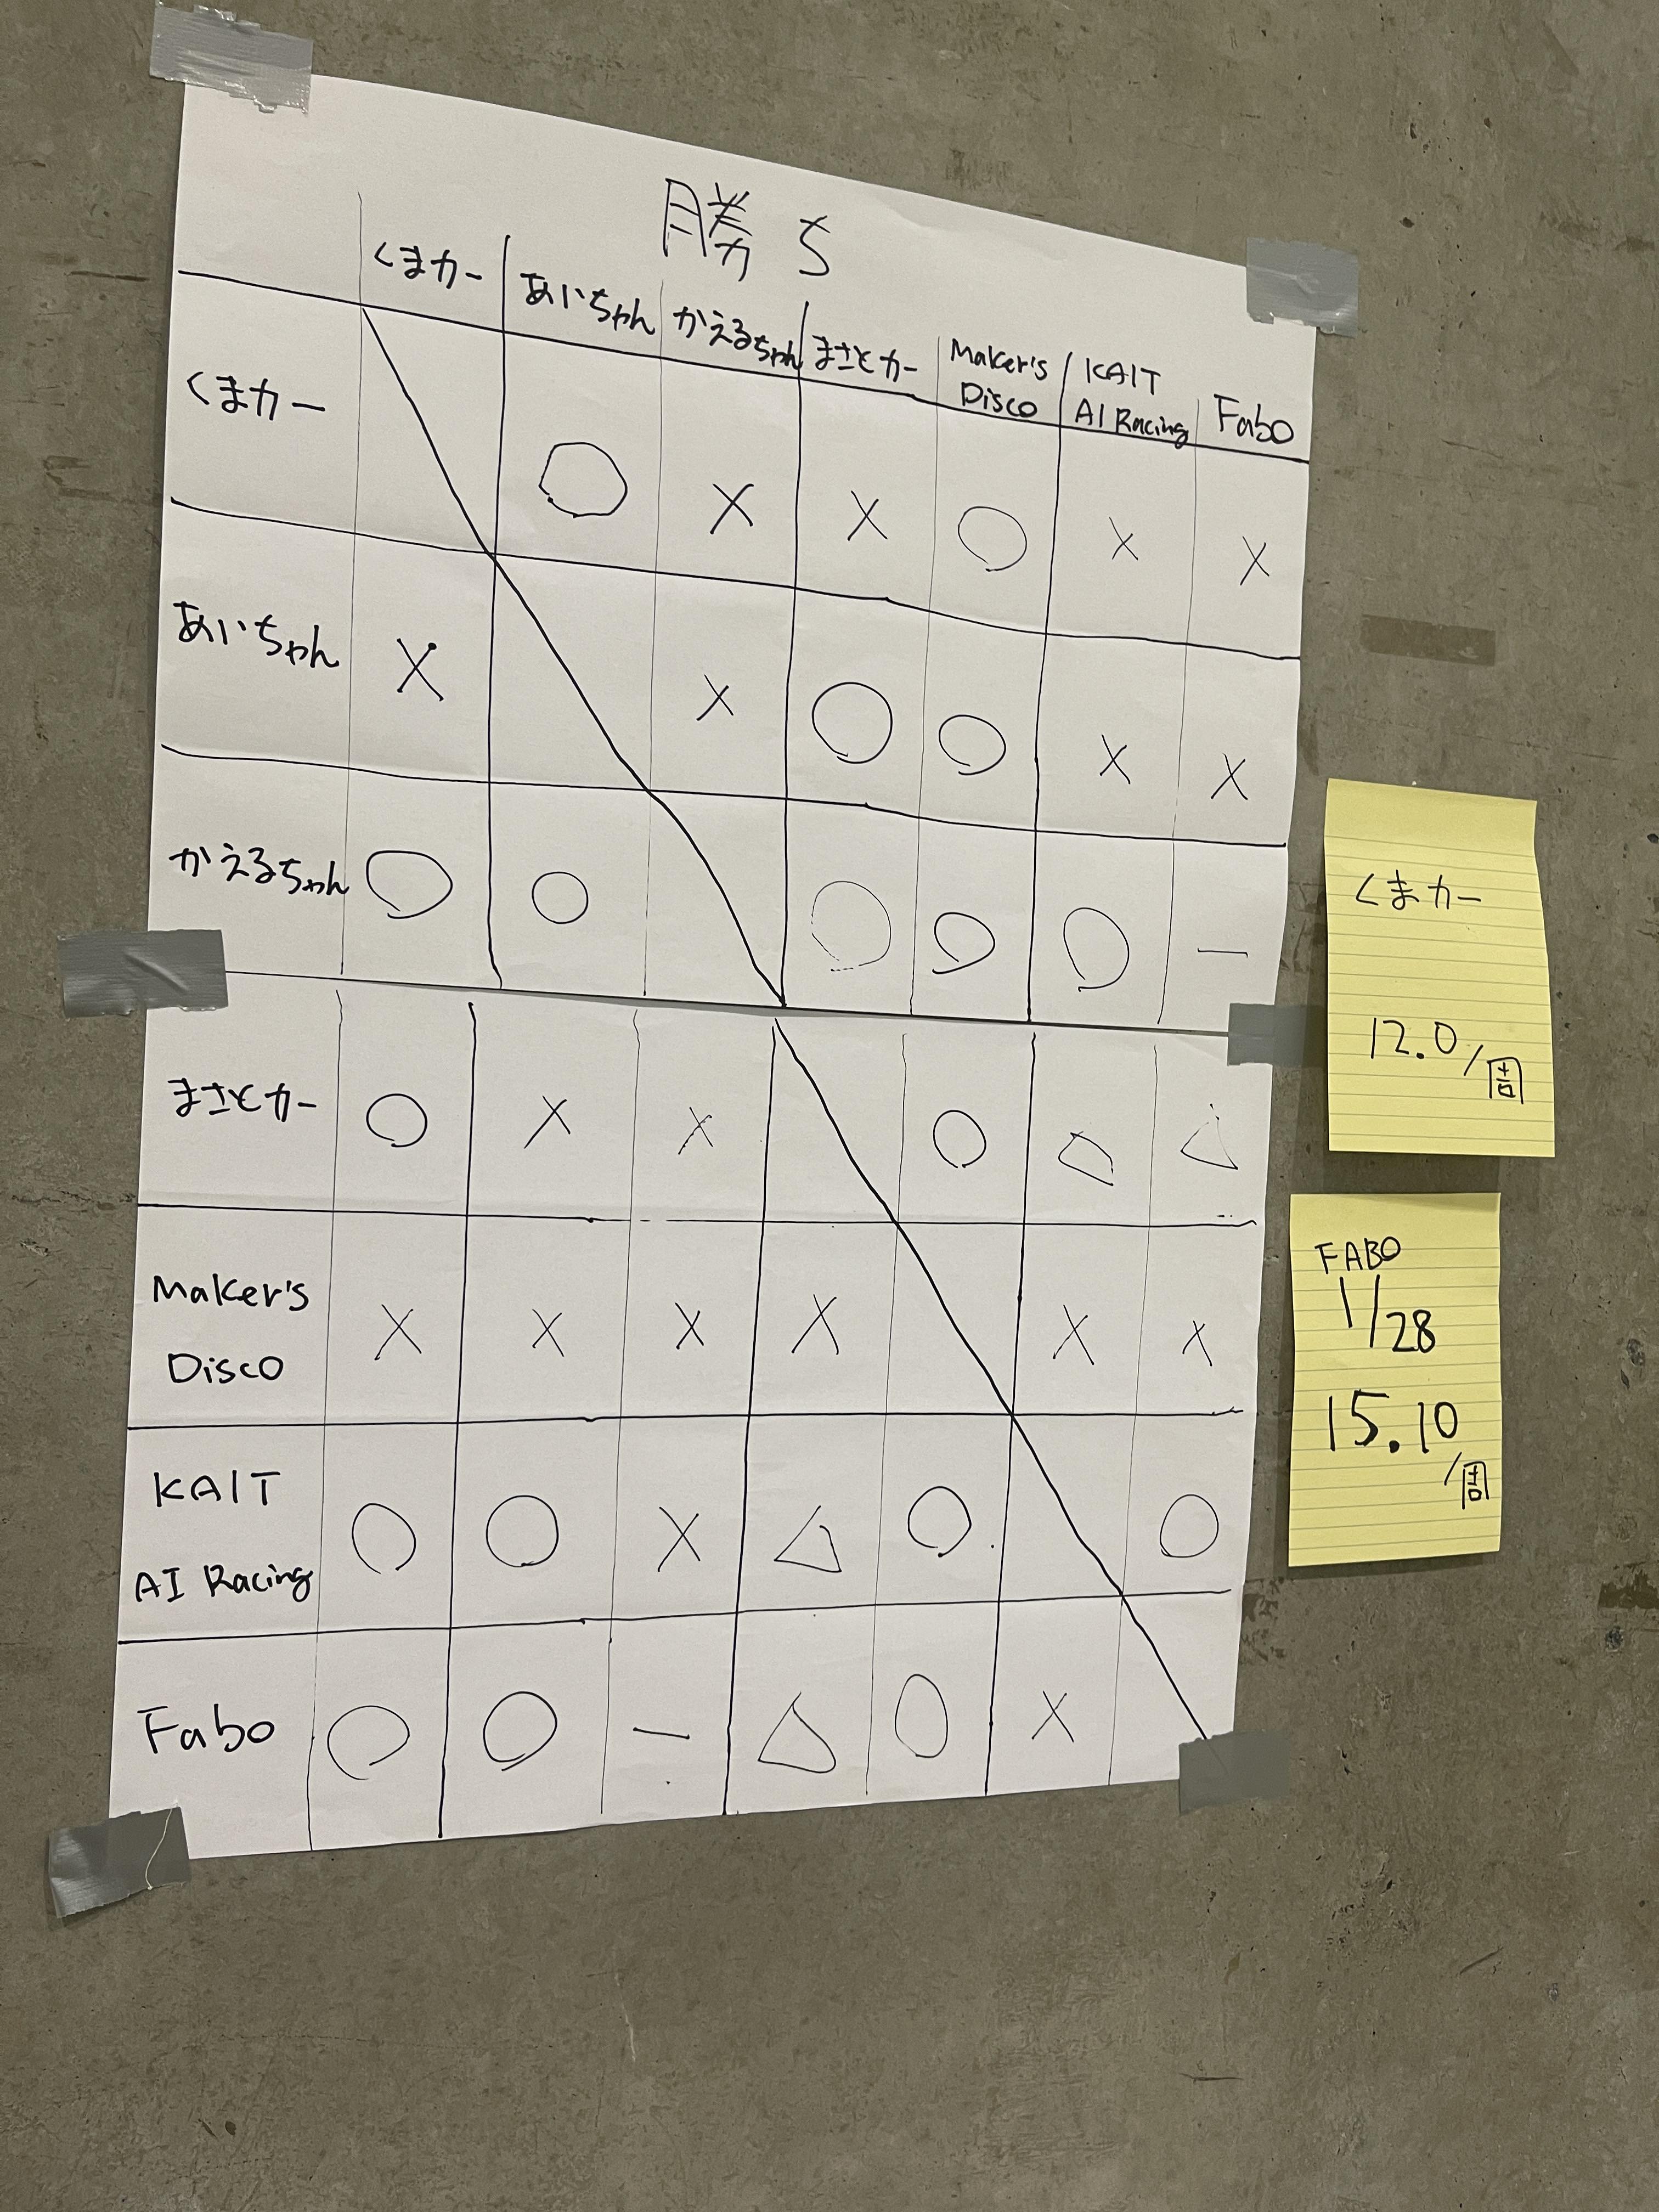 勝ち
くまカー あいちゃん かえるちゃん まさとカー Maker's Disco KAIT AI Racing Fabo
くまカー ○ × × ○ × ×
あいちゃん × × ○ ○ × ×
かえるちゃん ○ ○ ○ ○ ○ —
まさとカー ○ × × ○ △ △
Maker's Disco × × × × × ×
KAIT AI Racing ○ ○ × △ ○ ○
Fabo ○ ○ — △ ○ ×
くまカー
12.0/周
FABO
1/28
15.10
/周